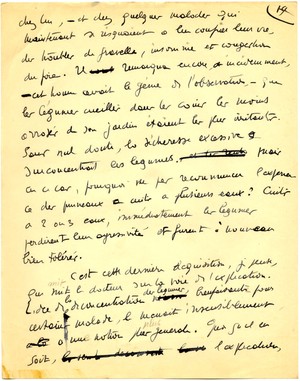 14
chez lui, - et chez quelques malades qui
maintenant se risquaient à lui confier leur vie,
des troubles de , insomnie et congestion
du foie. Il remarqua encore, incidemment,
- cet homme avait le génie de l'observation - que
les légumes cueillis dans le coin les moins
arrosés de son jardin étaient les plus irritants.
Sans nul doute, la sécheresse excessive
les légumes. mais
en ce cas, pourquoi ne pas recommencer l'expérien
ce des pruneaux cuits à plusieurs eaux? Cuits
à 2 ou 3 eaux, immédiatement les légumes
perdirent leur agressivité et furent à nouveau
bien tolérés.
C'est cette dernière acquisition, je pense,
qui mit le docteur sur la voie de l'explication.
L'idée de la des légumes, bienfaisante pour
certains malades, le menait insensiblement
à une notion plus générale. Quoi qu'il en
soit, l'explication,